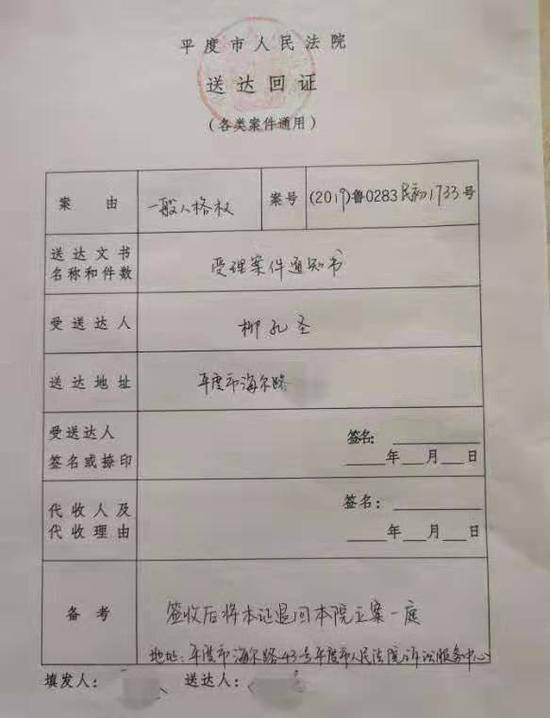 平度市人民法院
送达回证
(各类案件通用)
案由 一般人格权 案号 (2019)鲁0283民初1733号
送达文书
名称和件数 受理案件通知书
受送达人 柳孔圣
送达地址 平度市海尔路
受送达人
签名或捺印 签名:
年 月 日
代收人及
代收理由 签名:
年 月 日
备考 签收后将本证退回本院立案一庭
地址:平度市海尔路43号平度市人民法院诉讼服务中心
填发人: 送达人: